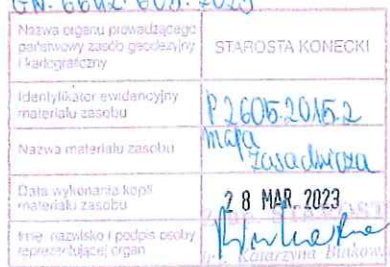 GN. 6642. 609. 2023
Nazwa organu prowadzącego
państwowy zasób geodezyjny
i kartograficzny
STAROSTA KONECKI
Identyfikator ewidencyjny
materiału zasobu
P.2605.2015.2
Nazwa materiału zasobu
mapa
zasadnicza
Data wykonania kopii
materiału zasobu
28 MAR. 2023
Imię, nazwisko i podpis osoby
reprezentującej organ
Katarzyna